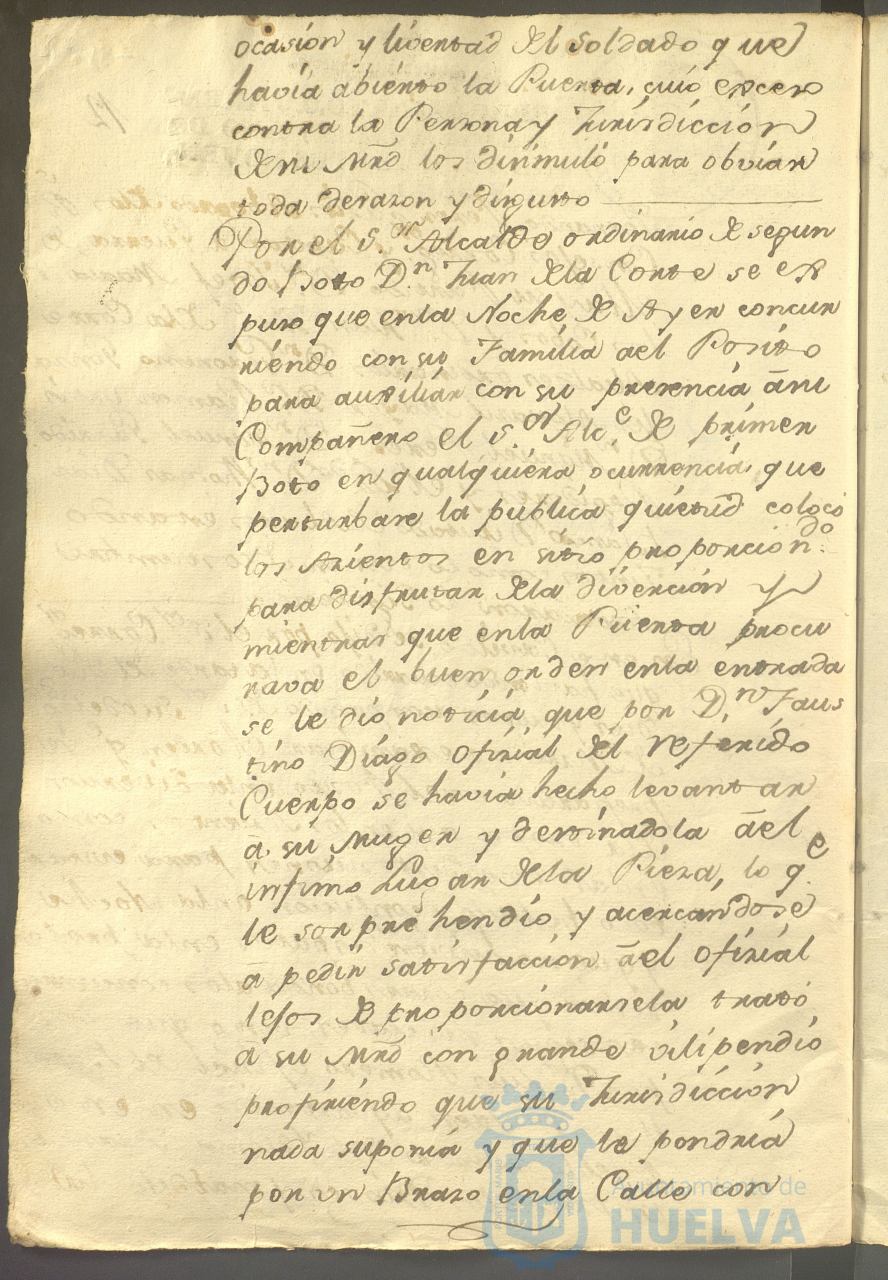 ocasion y livertad del soldado que
havia abierto la Puerta, cuio exceso
contra la Persona y Jurisdiccion
de su Mrd los disimuló para obviar
toda desazon y disgusto
Por el S.or Alcalde ordinario de segun
do Boto D.n Juan de la Corte se ex
puso que en la Noche de Ayer concur
riendo con su Familia a el Posito
para auxiliar con su presencia a mi
Compañero el S.or Alc.e de primer
Boto en qualquiera ocurrencia que
perturbare la publica quietud colocó
los Asientos en sitio proporcion.do
para disfrutar de la divercion y
mientras que en la Puerta procu
rava el buen orden en la entrada
se le dio noticia que por D.n Faus
tino Diago ofizial del referido
Cuerpo se havia hecho levantar
a su Muger y destinadola a el
infimo Lugar de la Pieza, lo q.e
le sorprehendio, y acercandose
a pedir satisfaccion a el ofizial
lejos de proporcionarsela trató
a su Mrd con grande vilipendio
profiriendo que su Jurisdiccion
nada suponia y que le pondria
por un Brazo en la Calle con
Ayuntamiento de
HUELVA